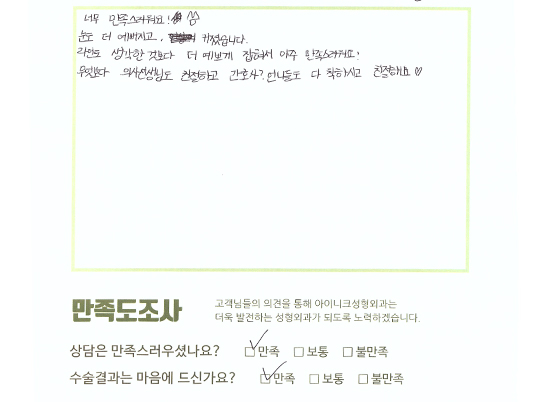 너무 만족스러워요!
눈도 더 예뻐지고, 커졌습니다.
라인도 생각한 것보다 더 예쁘게 잡혀서 아주 만족스러워요!
무엇보다 의사선생님도 친절하고 간호사? 언니들도 다 착하시고 친절해요 ♡
만족도조사
고객님들의 의견을 통해 아이니크성형외과는
더욱 발전하는 성형외과가 되도록 노력하겠습니다.
상담은 만족스러우셨나요? ☑ 만족 □ 보통 □ 불만족
수술결과는 마음에 드신가요? ☑ 만족 □ 보통 □ 불만족